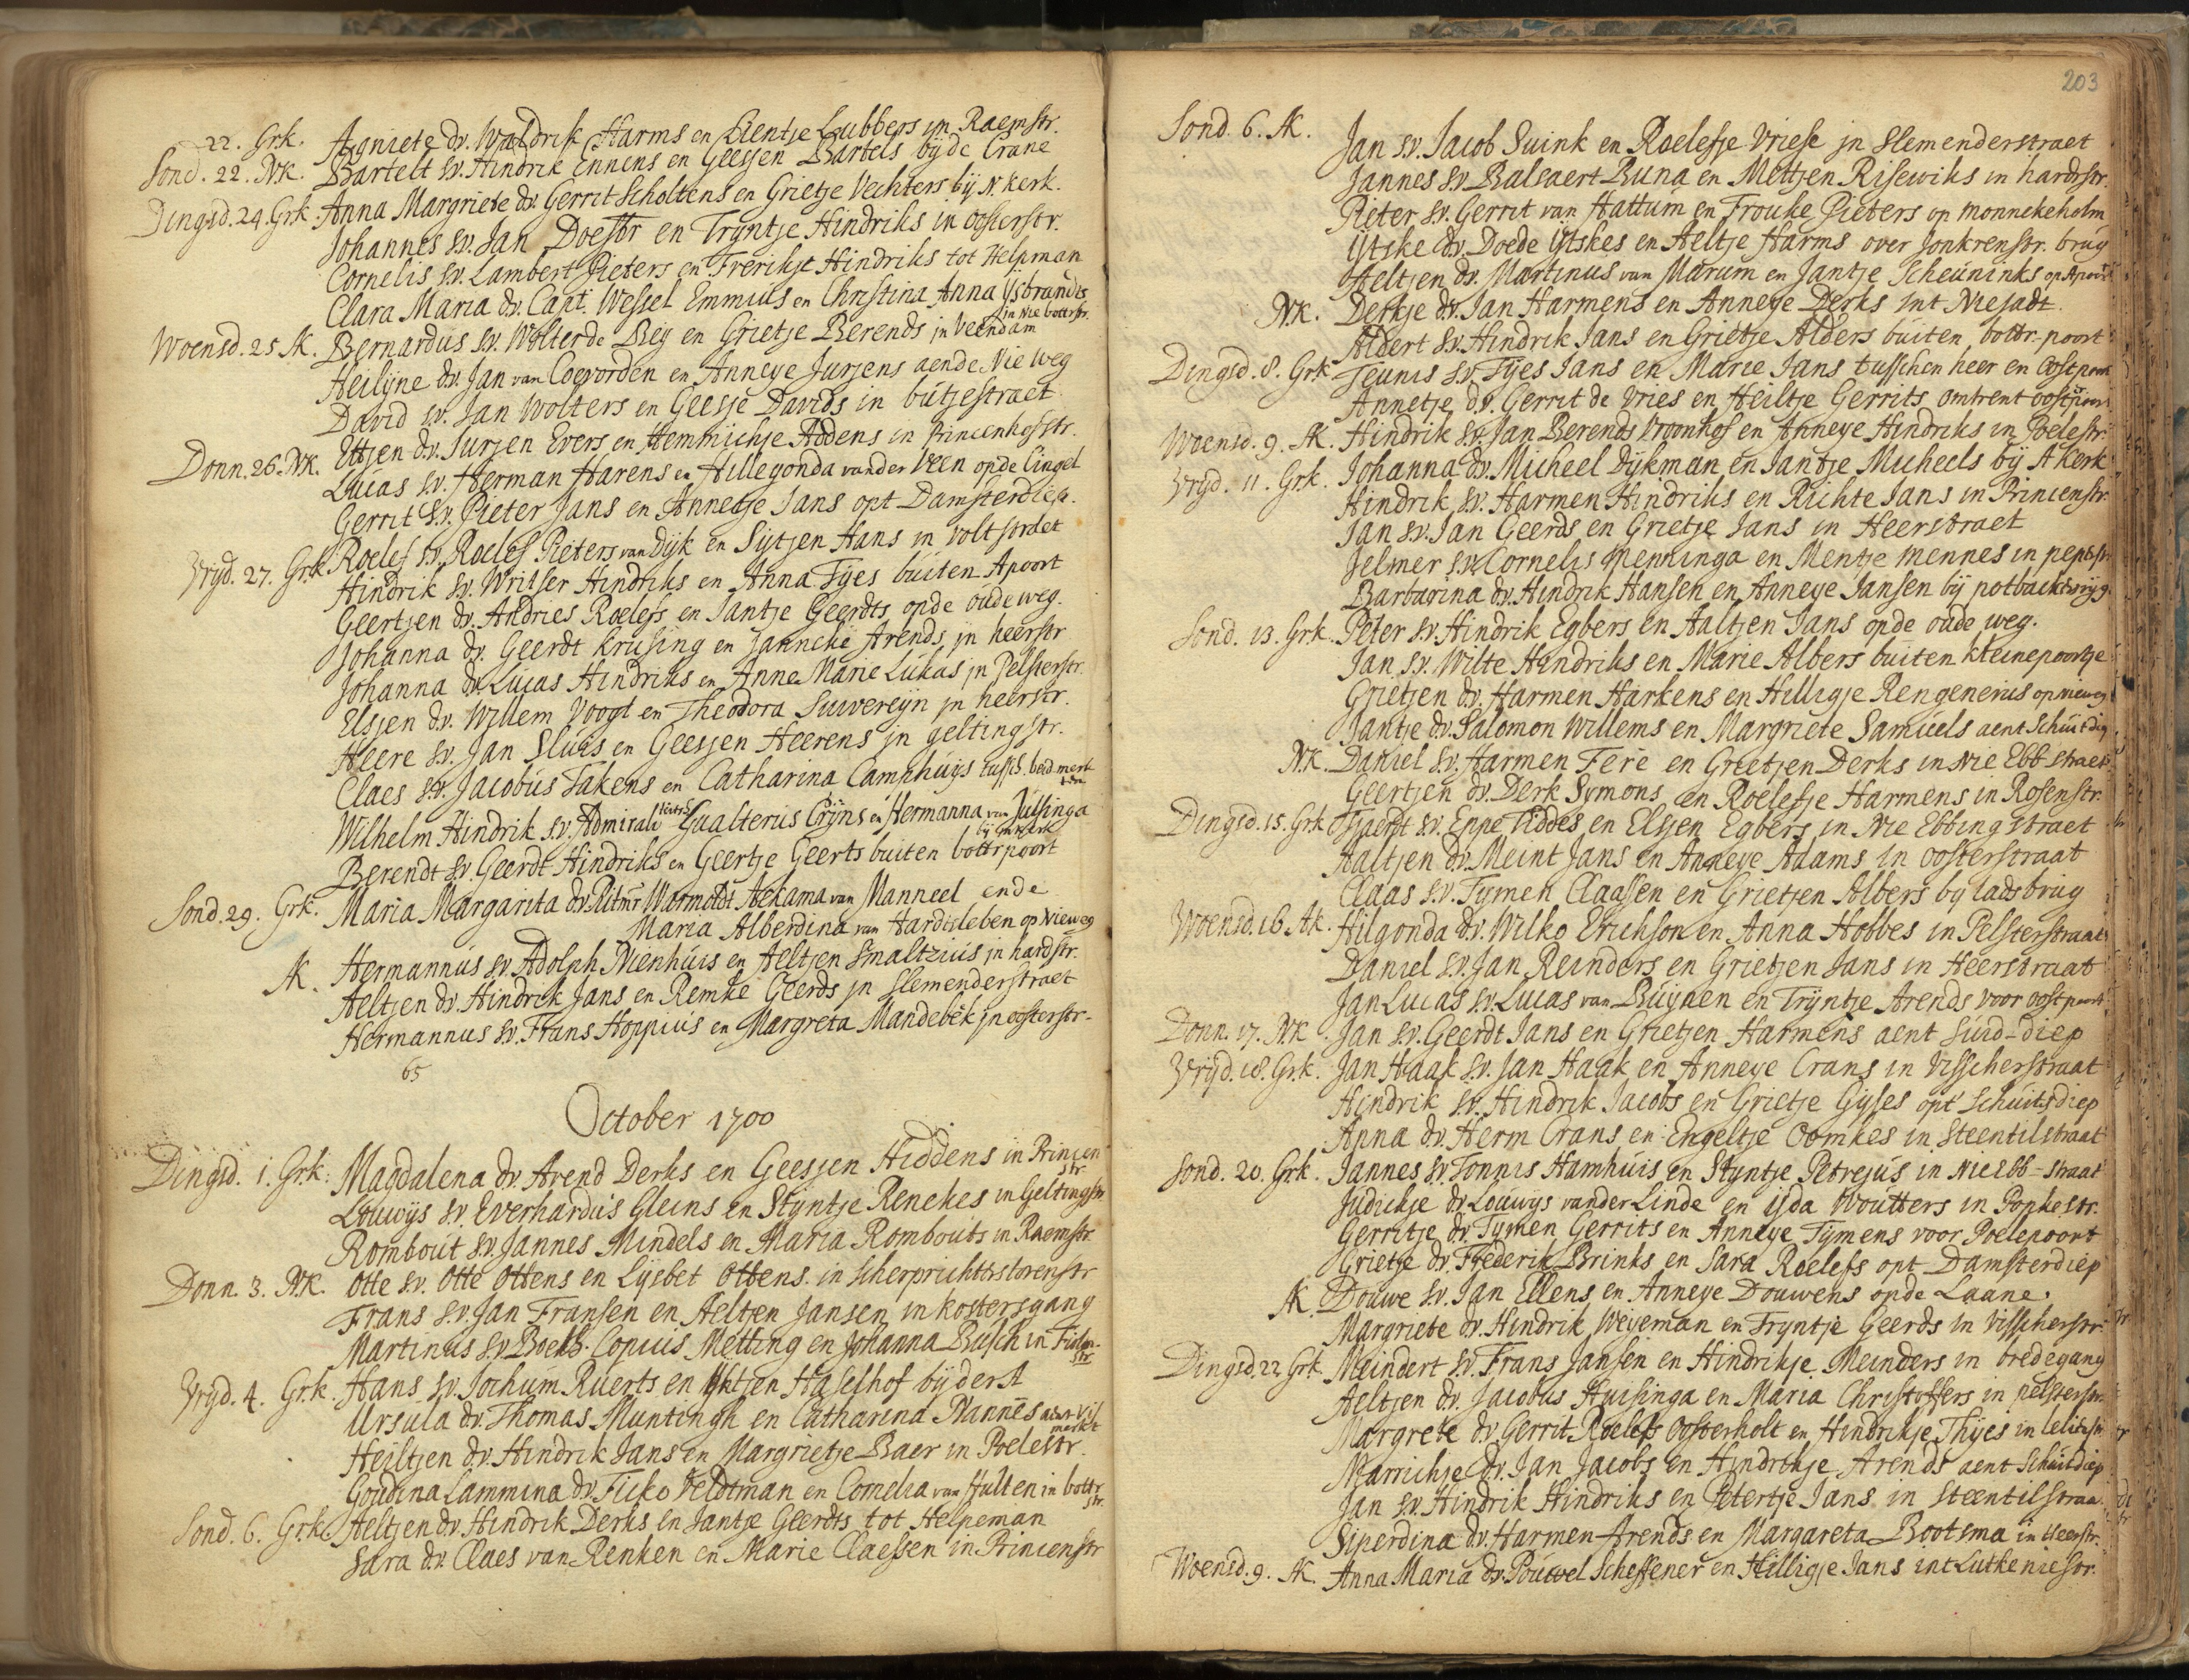 22. Grk. Agniete dr. Waldrik Harms en Lientje Lubbers in Raemstr.
Sond. 22. NK. Bartelt sv. Hindrik Ennens en Geesjen Bartels bij de Crane
Dingsd. 24. Grk. Anna Margriete dr. Gerrit Scholtens en Grietje Vechters bij N. Kerk.
Johannes sv. Jan Doestr en Tryntje Hindriks in oosterstr.
Cornelis sv. Lambert Pieters en Frerikje Hindriks tot Helpman
Clara Maria dr. Capt. Wessel Emmius en Christina Anna Ysbrandts
in Nie bottrstr.
Woensd. 25 AK. Bernardus sv. Wolter de Bey en Grietje Berends in Veendam
Heilyne dr. Jan van Coevorden en Anneye Jurjens aende Nie weg
David sv. Jan Wolters en Geesje Davids in butjestraet
Donn. 26. NK. Ettjen dr. Jurjen Evers en Hemmichje Addens in Princenhofstr.
Lucas sv. Herman Harens en Hillegonda vander Veen opde Cingel
Gerrit sv. Pieter Jans en Annetje Jans opt Damsterdiep.
Vryd. 27. Grk. Roelef sv. Roelef Pieters van Dyk en Sytjen Hans in volt straet
Hindrik sv. Writser Hindriks en Anna Tyes buiten Apoort
Geertjen dr. Andries Roelefs en Jantje Geerdts opde oude weg.
Johanna dr. Geerdt Krusing en Janncke Arends in heerstr
Johanna dr. Lucas Hindriks en Anne Marie Lukas in Pelsterstr.
Elsjen dr. Willem Voogt en Theodora Suvereyn in heerstr.
Heere sv. Jan Sluis en Geesjen Heerens in geltingstr.
Claes sv. Jacobus Takens en Catharina Camphuys tussch. beid. merkt
Wilhelm Hindrik sv. Admirale Gualterus Cryns en Hermanna van Julsinga
bij
Berendt sv. Geerdt Hindriks en Geertje Geerts buiten bottrpoort
Sond. 29. Grk. Maria Margarita dr. Ritmr Warmoldt Ackama van Manneel ende
Maria Alberdina van Hardisleben op Nieweg
AK. Hermannus sv. Adolph Nienhuis en Aeltjen Smaltzius in hardstr.
Aeltjen dr. Hindrik Jans en Remke Geerds in Slemenderstraet
Hermannus sv. Frans Hoppius en Margreta Mandebek in oosterstr.
65
October 1700
Dingsd. 1. Grk. Magdalena dr. Arend Derks en Geesjen Hiddens in Princen
str.
Louwys sv. Everhardus Gleins en Styntje Renekes in Geltingstr
Rombout sv. Jannes Mindels en Maria Rombouts in Raemstr.
Donn. 3. NK. Otte sv. Otte Ottens en Lysbet Ottens in Scherprichttrstorenstr
Frans sv. Jan Fransen en Aeltjen Jansen in kostersgang
Martinus sv. Boekb. Copius Metting en Johanna Busch in
str.
Vryd. 4. Grk. Hans sv. Jochum Ruerts en Haselhof bij der A
Ursula dr. Thomas Muntingh en Catharina Nannes aent vis
merkt
Heiltjen dr. Hindrik Jans en Margrietje Baer in Poelestr.
Goudina Lammina dr. Ficko Veldtman en Cornelia van Hulten in bottr.
str.
Sond. 6. Grk. Aeltjen dr. Hindrik Derks en Jantje Geerdts tot Helpeman
Sara dr. Claes van Renken en Marie Claessen in Princenstr
203
Sond. 6. AK. Jan sv. Jacob Suink en Roelefje Vriese in Slemenderstraet
Jannes sv. Balsaert Buna en Mettjen Risewiks in hardrstr.
Pieter sv. Gerrit van Hattum en Frouke Pieters op Monnekeholm
Ytske dr. Doede Ytskes en Aeltje Harms over Jonkrenstr. brug
Aeltjen dr. Martinus van Marum en Jantje Scheuninks op Apoort
NK. Derkje dr. Jan Harmens en Anneye Derks int Niejadt.
Aldert sv. Hindrik Jans en Grietje Alders buiten bottr-poort
Dingsd. 8. Grk. Teunis sv. Tyes Jans en Marie Jans tusschen heer en Oostpoort
Annetje dr. Gerrit de Vries en Heiltje Gerrits omtrent oostpoort
Woensd. 9. AK. Hindrik sv. Jan Berends Vroonhof en Anneye Hindriks in Poelestr.
Vryd. 11. Grk. Johanna dr. Micheel Dykman en Jantje Micheels bij A Kerk
Hindrik sv. Harmen Hindriks en Richte Jans in Princenstr.
Jan sv. Jan Geerds en Grietje Jans in Heerstraet
Jelmer sv. Cornelis Menninga en Mentje Mennes in
Barbarina dr. Hindrik Hansen en Anneye Jansen bij
Sond. 13. Grk. Peter sv. Hindrik Egbers en Aaltjen Jans opde oude weg.
Jan sv. Wilte Hindriks en Marie Albers buiten kleinepoortje
Grietjen dr. Harmen Harkens en Hilligje Rengenerus op nieweg
Jantje dr. Salomon Willems en Margriete Samuels aent Schuitdiep
NK. Daniel sv. Harmen Fere en Grietjen Derks in Nie Ebb-straet
Geertjen dr. Derk Symons en Roelefje Harmens in Rosenstr.
Dingsd. 15. Grk. Sjaerdt sv. Enne Tiddes en Elsjen Egbers in Nie Ebbingstraet
Aaltjen dr. Meint Jans en Anneye Adams in Oosterstraat
Claas sv. Tymen Claassen en Grietjen Albers by Iadsbrug
Woensd. 16 AK. Hilgonda dr. Wilko Erichson en Anna Hobbes in Pelsterstraat
Daniel sv. Jan Reinders en Grietjen Jans in Heerstraat
Jan Lucas sv. Lucas van Buynen en Tryntje Arends voor oostpoort
Donn. 17. NK. Jan sv. Geerdt Jans en Grietjen Harmens aent Suid-diep
Vryd. 18. Grk. Jan Haak sv. Jan Haak en Anneye Crans in Visscherstraat
Hindrik sv. Hindrik Jacobs en Grietje Gyses opt Schuitsdiep
Anna dr. Herm Crans en Engeltje Oomkes in Steentilstraat
Sond. 20. Grk. Jannes sv. Tonnis Hamhuis en Styntje Petrejus in Nie Ebb-straat
Judickje dr. Louwys vander Linde en Yda Woutters in Popkestr.
Gerritje dr. Tymen Gerrits en Anneye Tymens voor Poelepoort
Grietje dr. Frederik Brinks en Sara Roelefs opt Damsterdiep
AK. Douwe sv. Jan Ellens en Anneye Douwens opde Laane.
Margriete dr. Hindrik Weveman en Tryntje Geerds in Visscherstr.
Dingsd. 22. Grk. Meindert sv. Frans Jansen en Hindrikje Meinders in bredegang
Aeltjen dr. Jacobus Huisinga en Maria Christoffers in pelsterstr.
Margrete dr. Gerrit Roelefs Oosterholt en Hindrikje Thyes in
Marrichje dr. Jan Jacobs en Hindrikje Arends aent Schuitdiep
Jan sv. Hindrik Hindriks en Petertje Jans in Steentilstraa
Siperdina dr. Harmen Arends en Margareta Bootsma in Heerstr.
Woensd. 9. AK. Anna Maria dr. Pouwel Scheffener en Hilligje Jans int Lutke niestr.